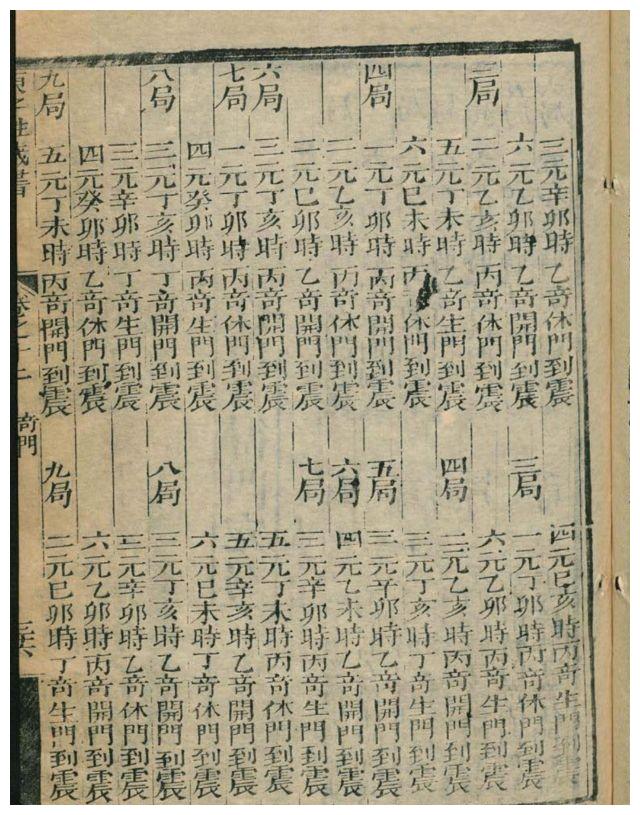 三元辛卯時乙竒休門到震
六元乙卯時乙竒開門到震
三局 二元乙亥時丙竒休門到震
五元丁未時乙竒生門到震
六元巳未時丙竒休門到震
四局 一元丁卯時丙竒開門到震
二元乙亥時丙竒休門到震
二元巳卯時乙竒開門到震
六局 三元丁亥時丙竒生門到震
七局 一元丁卯時丙竒休門到震
四元癸卯時丙竒生門到震
八局 三元丁亥時丁竒開門到震
三元辛卯時丁竒生門到震
四元癸卯時乙竒休門到震
九局 五元丁未時丙竒開門到震
四元巳亥時丙竒生門到震
三局 一元丁卯時丙竒休門到震
六元乙卯時丙竒生門到震
四局 二元乙亥時丙竒生門到震
三元丁亥時丁竒生門到震
五局 三元辛卯時乙竒開門到震
六局 四元乙未時乙竒開門到震
七局 三元辛卯時丙竒生門到震
五元丁未時丙竒休門到震
五元辛亥時乙竒開門到震
六元巳未時丁竒休門到震
八局 三元丁亥時乙竒開門到震
三元辛卯時乙竒休門到震
六元乙卯時丙竒開門到震
九局 二元巳卯時丁竒生門到震
竒門